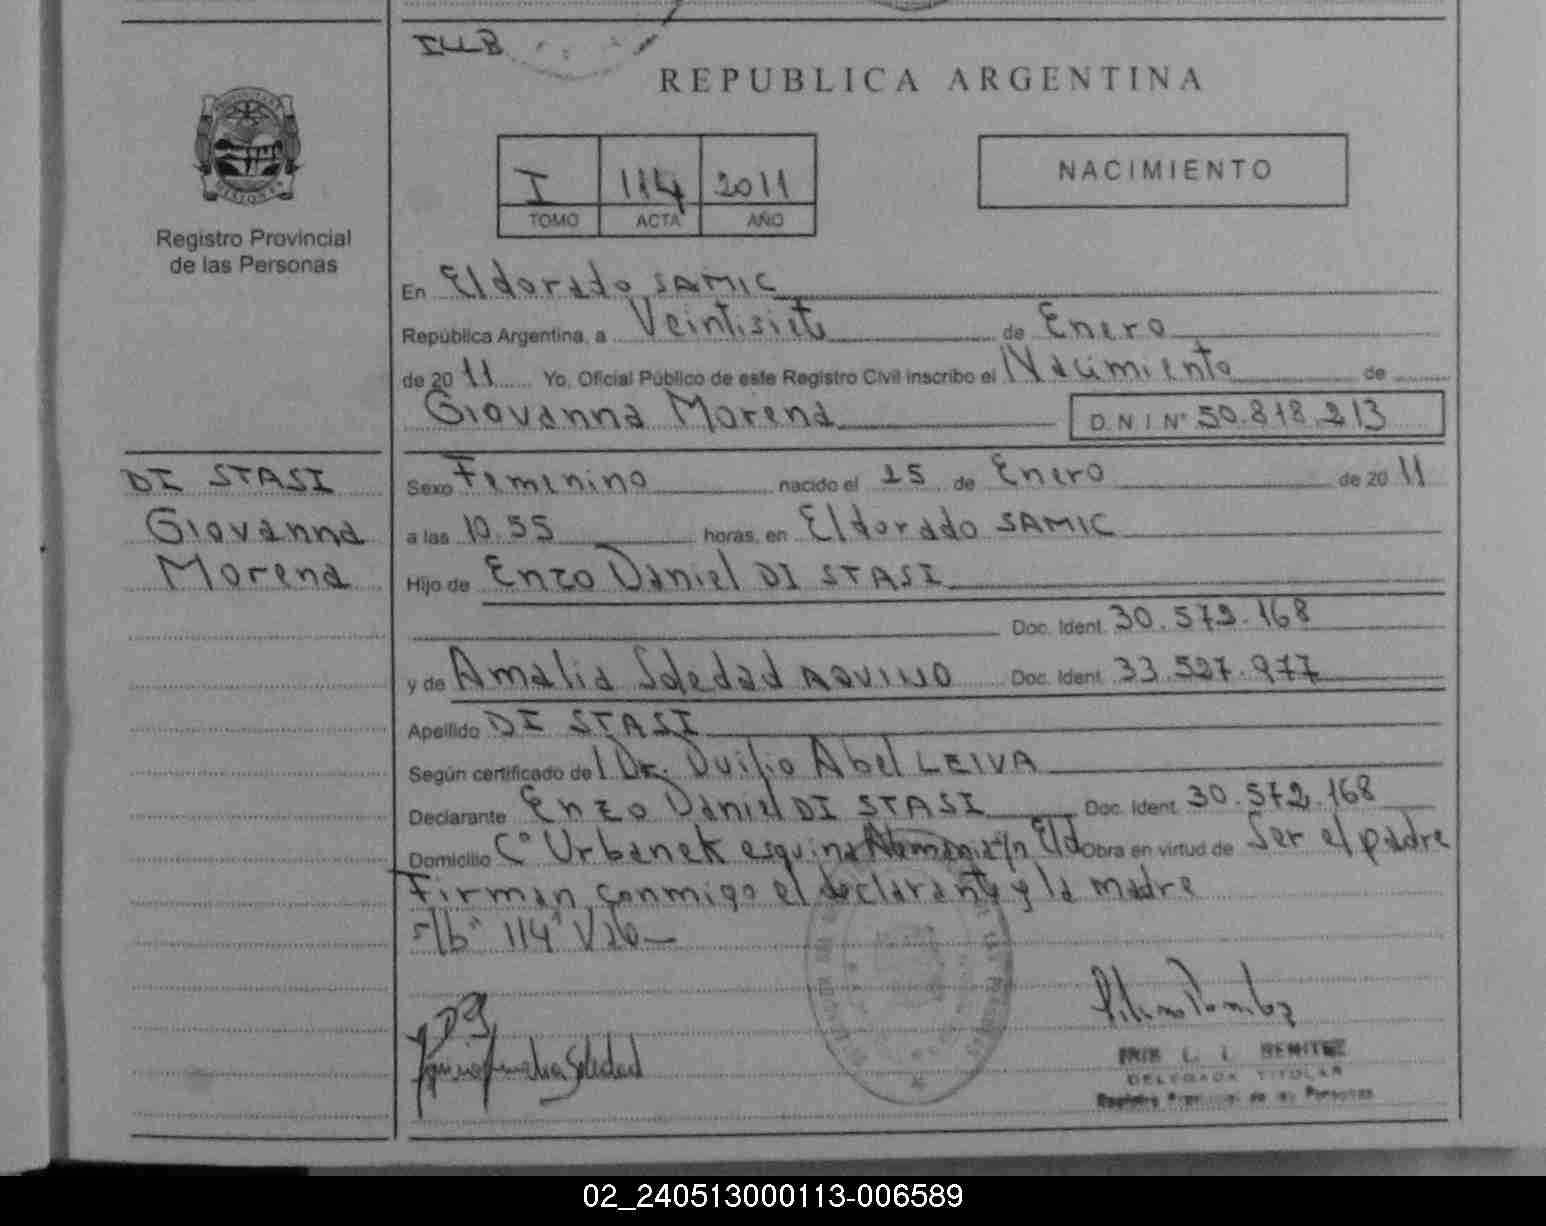 ILLB
REPUBLICA ARGENTINA
Registro Provincial
de las Personas
I 114 2011
TOMO ACTA AÑO
NACIMIENTO
En Eldorado SAMIC
República Argentina, a Veintisiete de Enero
de 2011 Yo, Oficial Público de este Registro Civil inscribo el Nacimiento de
Giovanna Morena D.N.I Nº 50.818.213
DI STASI
Giovanna
Morena
Sexo Femenino nacido el 25 de Enero de 2011
a las 10.55 horas, en Eldorado SAMIC
Hijo de Enzo Daniel DI STASI
Doc. Ident. 30.572.168
y de Amalia Soledad AQUINO Doc. Ident. 33.527.977
Apellido DI STASI
Según certificado del Dr. Duilio Abel LEIVA
Declarante Enzo Daniel DI STASI Doc. Ident. 30.572.168
Domicilio Cº Urbanek esquina Alemania s/n Eld Obra en virtud de Ser el padre
Firman conmigo el declarante y la madre
"114"
Soledad
L. I. BENITEZ
DELEGADA TITULAR
Registro Provincial de las Personas
02_240513000113-006589